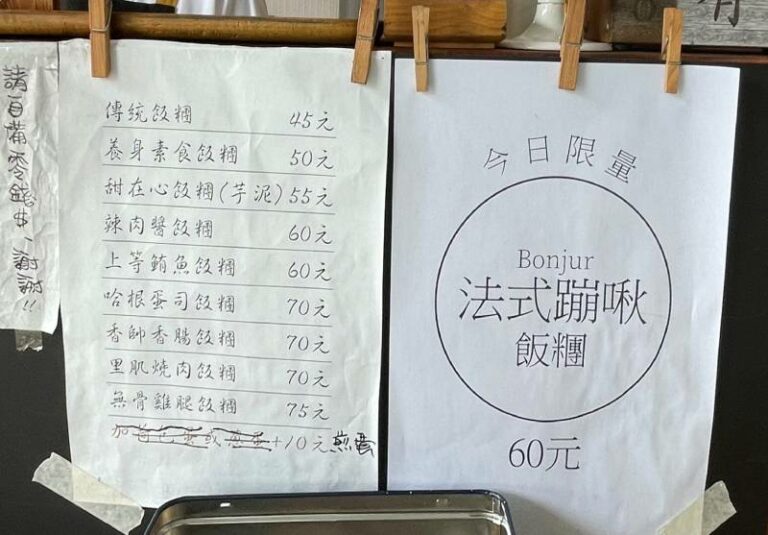 請自備零錢$、謝謝!!
傳統飯糰 45元
養身素食飯糰 50元
甜在心飯糰(芋泥) 55元
辣肉醬飯糰 60元
上等鮪魚飯糰 60元
哈根蛋司飯糰 70元
香帥香腸飯糰 70元
里肌燒肉飯糰 70元
無骨雞腿飯糰 75元
加 或 蛋+10元煎蛋
今日限量
Bonjur
法式蹦啾
飯糰
60元